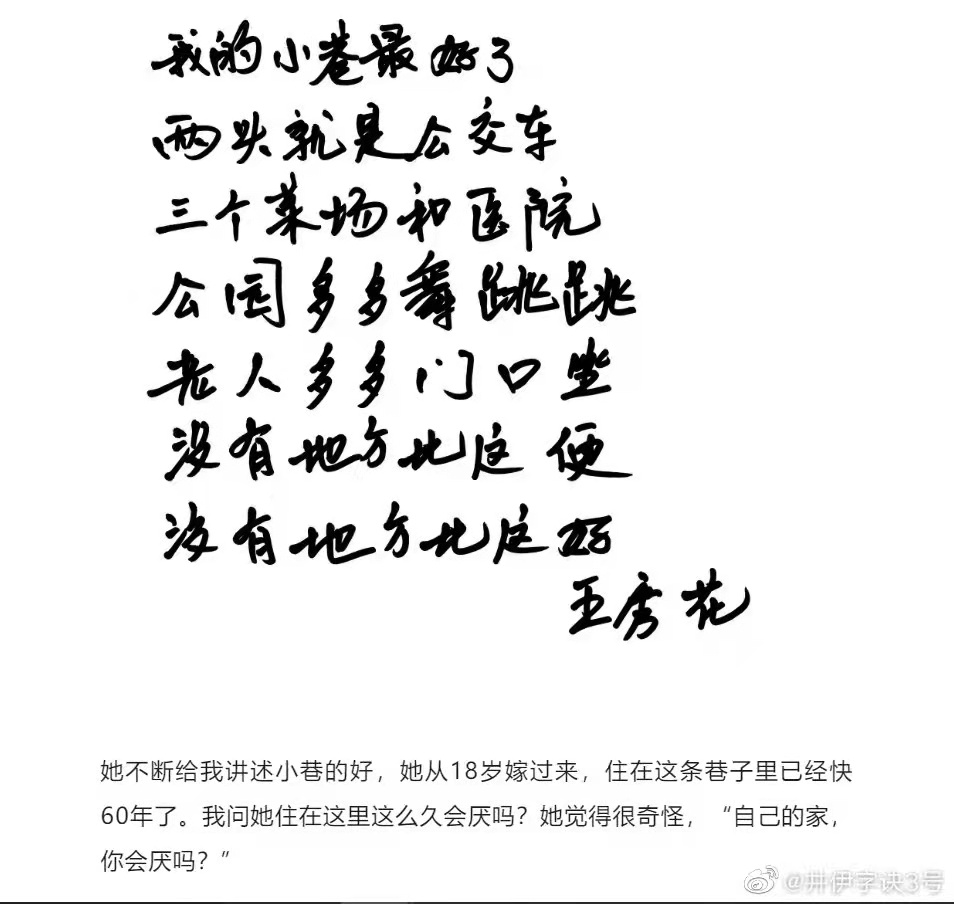 我的小巷最好了
两头就是公交车
三个菜场和医院
公园多多舞跳跳
老人多多门口坐
没有地方比这便
没有地方比这好
王秀花
她不断给我讲述小巷的好，她从18岁嫁过来，住在这条巷子里已经快
60年了。我问她住在这里这么久会厌吗？她觉得很奇怪，“自己的家，
你会厌吗？”
@井伊字诀3号